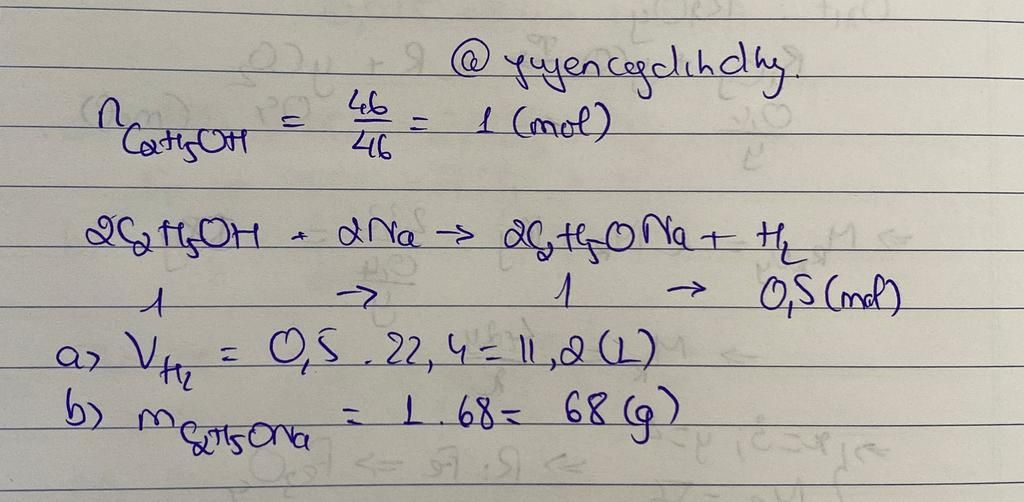 @yuyencegdihdhg.
n C₂H₅OH = 46/46 = 1 (mol)
2C₂H₅OH + 2Na → 2C₂H₅ONa + H₂
1 → 1 → 0,5 (mol)
a) V H₂ = 0,5 . 22,4 = 11,2 (L)
b) m C₂H₅ONa = 1 . 68 = 68 (g)